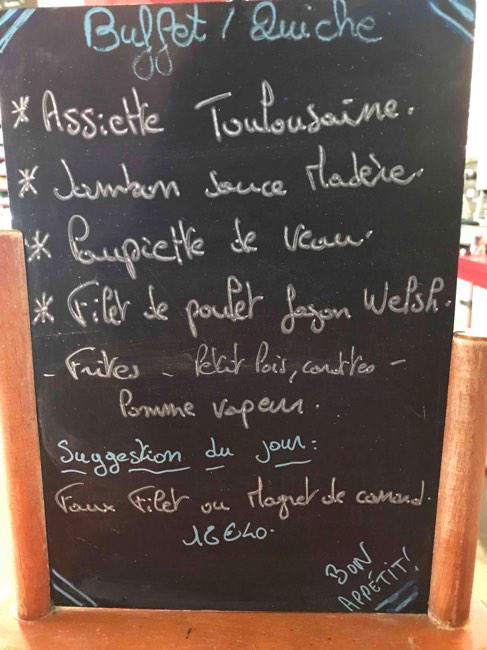 Buffet / Quiche
* Assiette Toulousaine.
* Jambon sauce Madère.
* Paupiette de veau.
* Filet de poulet façon Welsh.
- Frites - Petit Pois, carottes -
Pomme vapeur.
Suggestion du jour:
Faux Filet ou Magret de canard.
18€40.
BON
APPÉTIT!